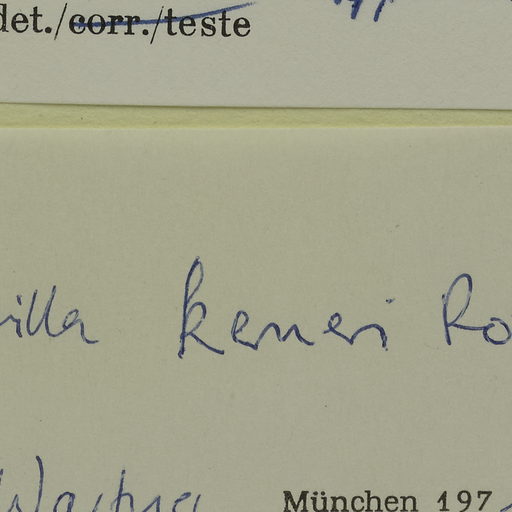 det./corr./teste
illa kerneri Ro
München 197